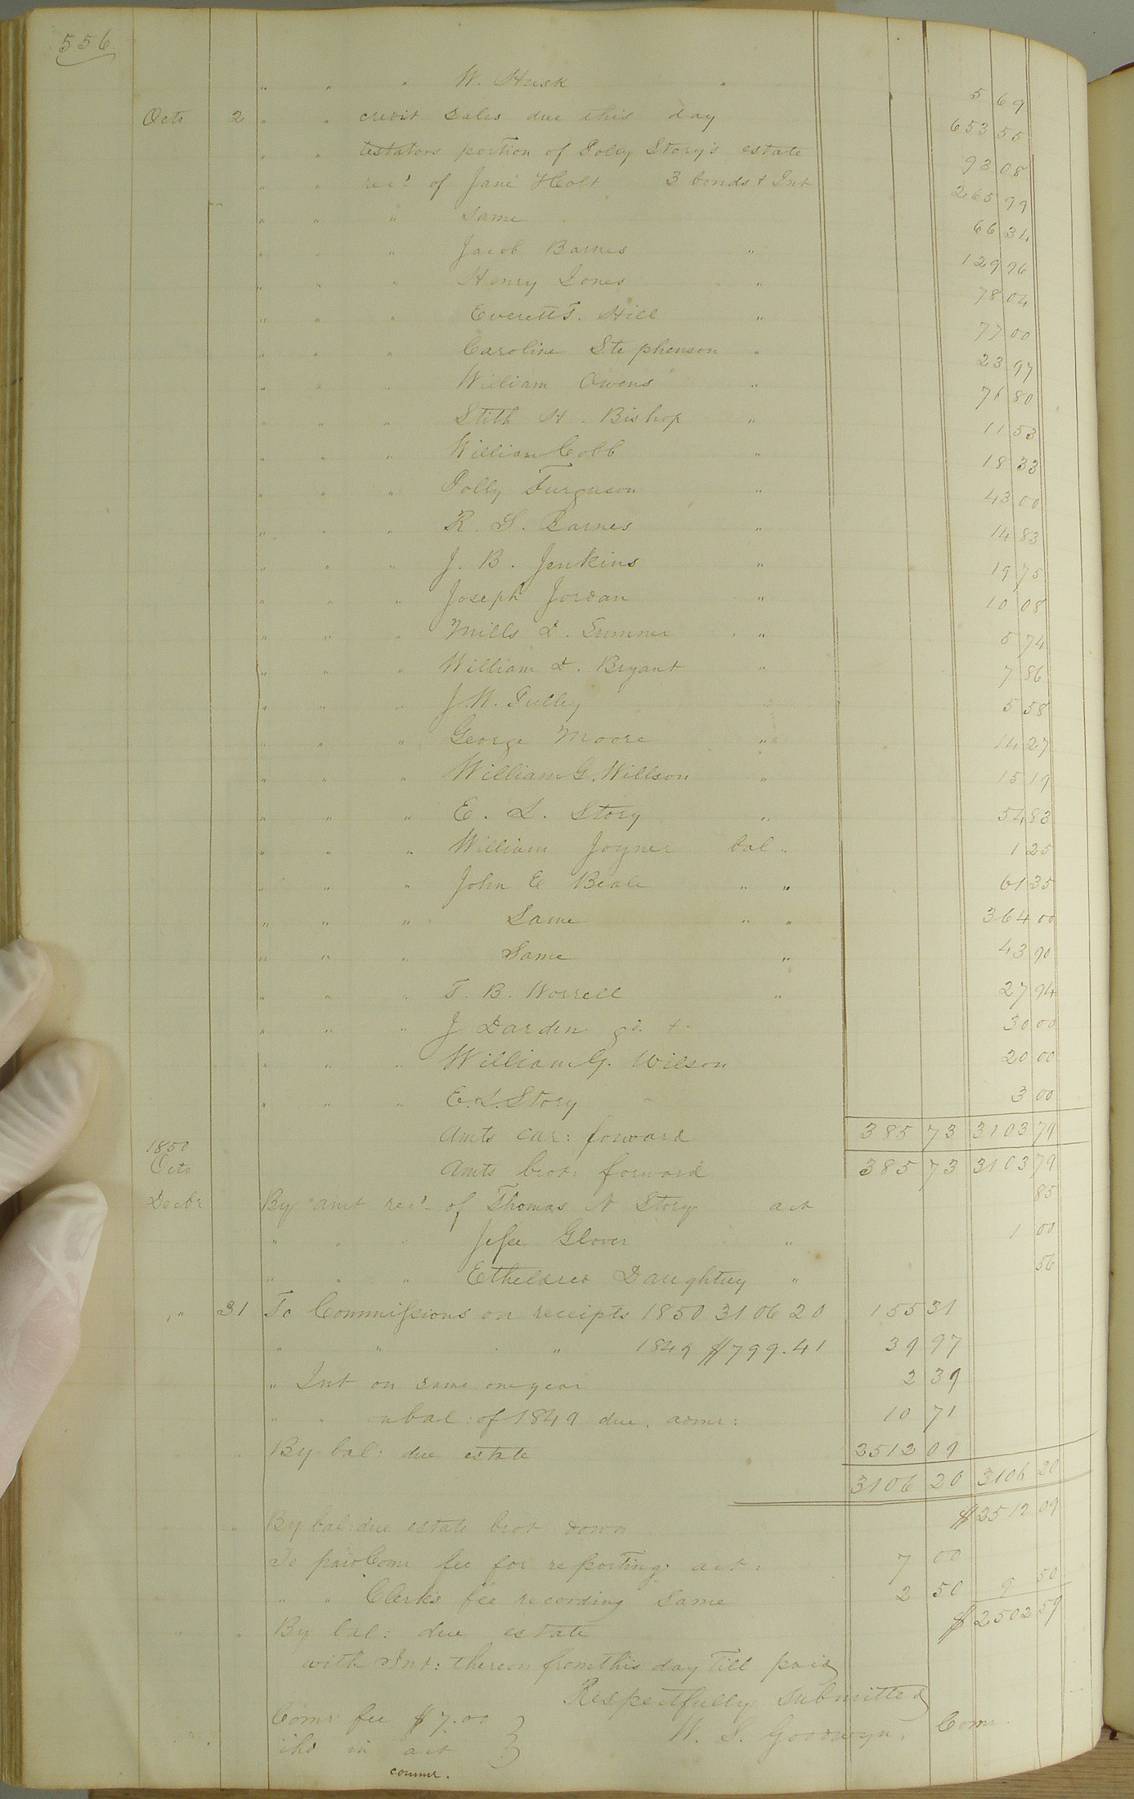 556
" " " W. Husk " 5 69
Octo 2 " " credit sales due this day 653 55
" " testators portion of Polly Story's estate 93 08
" " rec'd of Jane Holt 3 bonds & Int 265 99
" " " Same 66 34
" " Jacob Barnes " 129 96
" " " Henry Jones " 78 04
" " " Everett T. Hill " 77 00
" " " Caroline Stephenson " 23 97
" " " William Owens " 76 80
" " " Stith H. Bishop " 11 53
" " " William Cobb " 18 33
" " " Polly Furguson " 43 00
" " " R. S. Barnes " 14 83
" " " J. B. Jenkins " 19 75
" " " Joseph Jordan " 10 08
" " " Mills D. Sumner " 5 74
" " " William D. Bryant " 7 86
" " " J. W. " 5 58
" " " George Moore " 14 27
" " " William G. Willson " 15 19
" " " E. L. Story " 54 83
" " " William Joyner bal " 1 25
" " " John E Beale " " 61 35
" " " Same " " 364 00
" " " Same " 43 90
" " " T. B. Worrell " 27 94
" " " J Darden 30 00
" " " William G. Wilson 20 00
" " " E. L. Story 3 00
Amts car: forward 385 73 3103 79
1850
Octo Amts brot: forward 385 73 3103 79
Decbr By amt rec'd of Thomas N Story act 85
" " " Jesse Glover " 1 00
" " " Etheldred Daughtrey " 56
" 31 To Commissions on receipts 1850 3106 20 155 31
" " " 1849 $799.41 39 97
" Int on same one year 2 39
" " on bal: of 1849 due admr: 10 71
By bal: due estate 2512 09
3106 20 3106 20
By bal: due estate brot down $2512 09
To paid Comr fee for reporting act: 7 00
" " Clerk's fee recording same 2 50 9 50
By bal: due estate $2502 59
with Int: thereon from this day till paid
Respectfully submitted
Comr fee $7.00 W. S. Goodwyn, Comr
chd in act
commr.